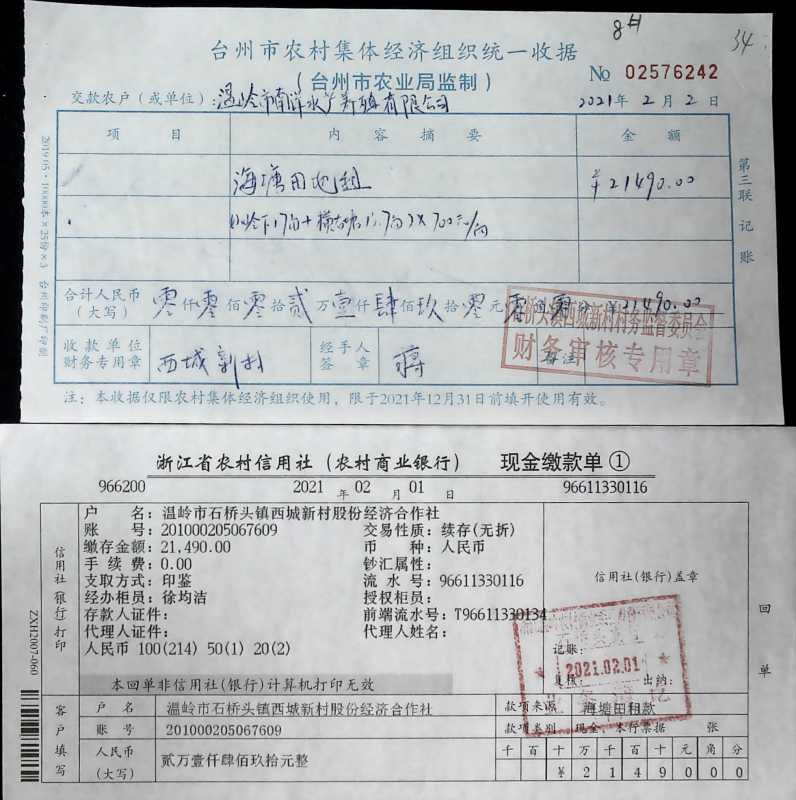 8#
34
台州市农村集体经济组织统一收据
（台州市农业局监制）
№ 02576242
交款农户（或单位）：温岭市南洋水产养殖有限公司
2021年2月2日
项目 内容摘要 金额
海塘田地租 ¥21490.00
合计人民币（大写） 零仟零佰零拾贰万壹仟肆佰玖拾零元零角零分 ¥21490.00
收款单位财务专用章 西城新村 经手人签章 蒋 备注
桥头镇西城新村村务监督委员会
财务审核专用章
注：本收据仅限农村集体经济组织使用，限于2021年12月31日前填开使用有效。
第三联 记账
浙江省农村信用社（农村商业银行） 现金缴款单①
966200 2021年02月01日 96611330116
户名：温岭市石桥头镇西城新村股份经济合作社
账号：201000205067609 交易性质：续存(无折)
缴存金额：21,490.00 币种：人民币
手续费：0.00 钞汇属性：
支取方式：印鉴 流水号：96611330116
经办柜员：徐均洁 授权柜员：
存款人证件： 前端流水号：T96611330134
代理人证件： 代理人姓名：
人民币 100(214) 50(1) 20(2)
信用社(银行)打印
信用社(银行)盖章
记账：
复核： 出纳：
2021.02.01
回单
ZXH2007-060
本回单非信用社(银行)计算机打印无效
客户填写
户名 温岭市石桥头镇西城新村股份经济合作社 款项来源 海塘田租款
账号 201000205067609 款项类别 现金、本行票据 张
人民币（大写） 贰万壹仟肆佰玖拾元整
千百十万千百十元角分
¥2149000